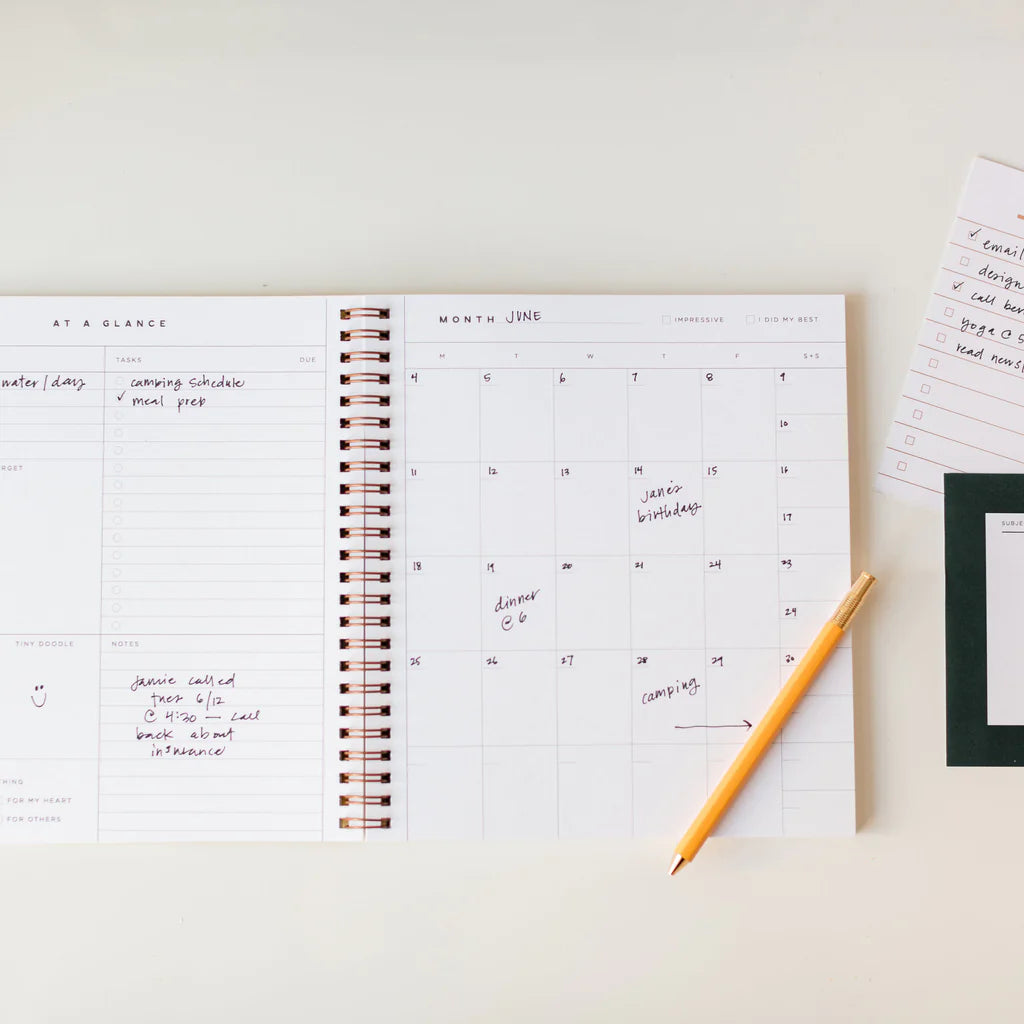 AT A GLANCE
water/day
TASKS DUE
camping schedule
meal prep
RGET
TINY DOODLE
NOTES
Jamie called
tues 6/12
@ 4:30 — call
back about
insurance
HING
FOR MY HEART
FOR OTHERS
MONTH JUNE
IMPRESSIVE
I DID MY BEST
M T W T F S+S
4 5 6 7 8 9
10
11 12 13 14 15 16
jane's
birthday
17
18 19 20 21 24 23
dinner
@ 6
24
25 26 27 28 29 30
camping
email
design
call ben
yoga @ 5
read news
SUBJE